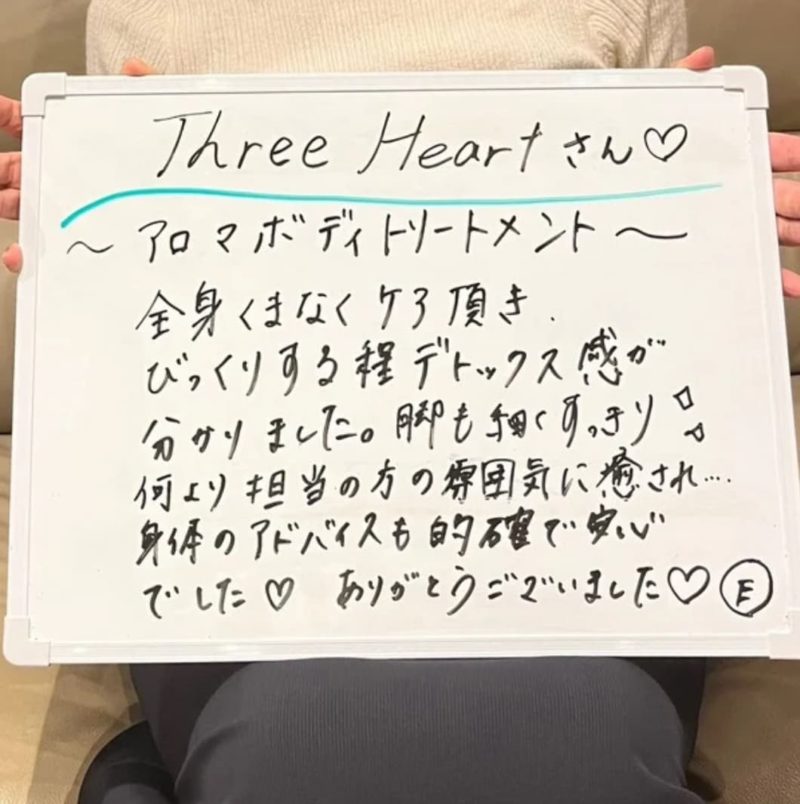 Three Heart さん♡
～ アロマボディトリートメント ～
全身くまなくケア頂き、
びっくりする程デトックス感が
分かりました。脚も細くすっきり
何より担当の方の雰囲気に癒され…
身体のアドバイスも的確で安心
でした♡ ありがとうございました♡ Ⓔ